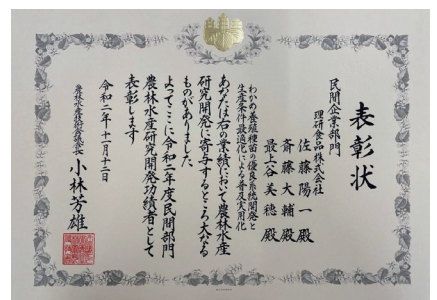 表彰状
民間企業部門
理研食品株式会社
佐藤陽一殿
斎藤大輔殿
最上谷美穂殿
わかめ養殖種苗の優良系統開発と
生産条件最適化による普及実用化
あなたは右の業績において農林水産
研究開発に寄与するところ大なる
ものがありました
よってここに令和二年度民間部門
農林水産研究開発功績者として
表彰します
令和二年十一月十二日
農林水産技術会議会長 小林芳雄